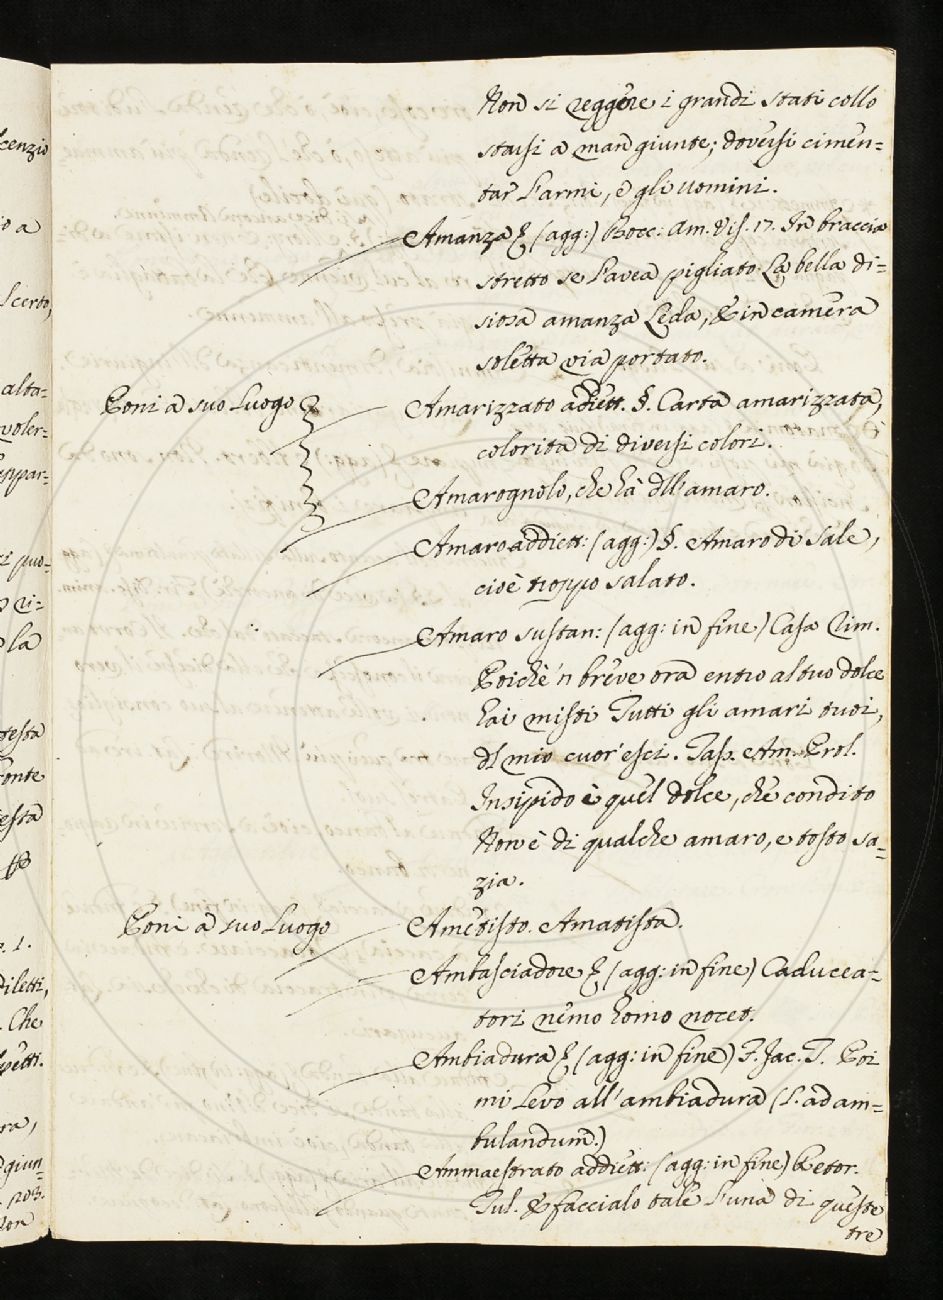 Non si reggere i grandi stati collo
starsi a man giunte; doversi cimen=
tar l'armi, e gli uomini.
Amanza (agg:) Bocc. Am. Vis. 17. In braccia
stretto se l'avea pigliato La bella di=
siosa amanza Leda, & in camera
soletta via portato.
Poni a suo Luogo
Amarizzato adiett. §. Carta amarizzata,
colorita di diversi colori.
Amarognolo, che hà dll'amaro.
Amaro addiett: (agg:) §. Amaro di sale,
cioè troppo salato.
Amaro sustan: (agg: in fine) Casa Rim.
Poichè 'n breve ora entro al tuo dolce
hai misti Tutti gli amari tuoi,
dl mio cuor'esci. Tass. Am. Prol.
Insipido è quel dolce, che condito
Non è di qualche amaro, e tosto sa=
zia.
Poni a suo Luogo
Ametisto. Amatista.
Ambasciadore (agg: in fine) Caducea=
tori nemo homo nocet.
Ambiadura (agg: in fine) F. Jac. T. Poi
mi levo all'ambiadura (L. ad am=
bulandum.)
Ammaestrato addiett: (agg: in fine) Retor.
Tul. & faccialo tale l'una di queste
tre